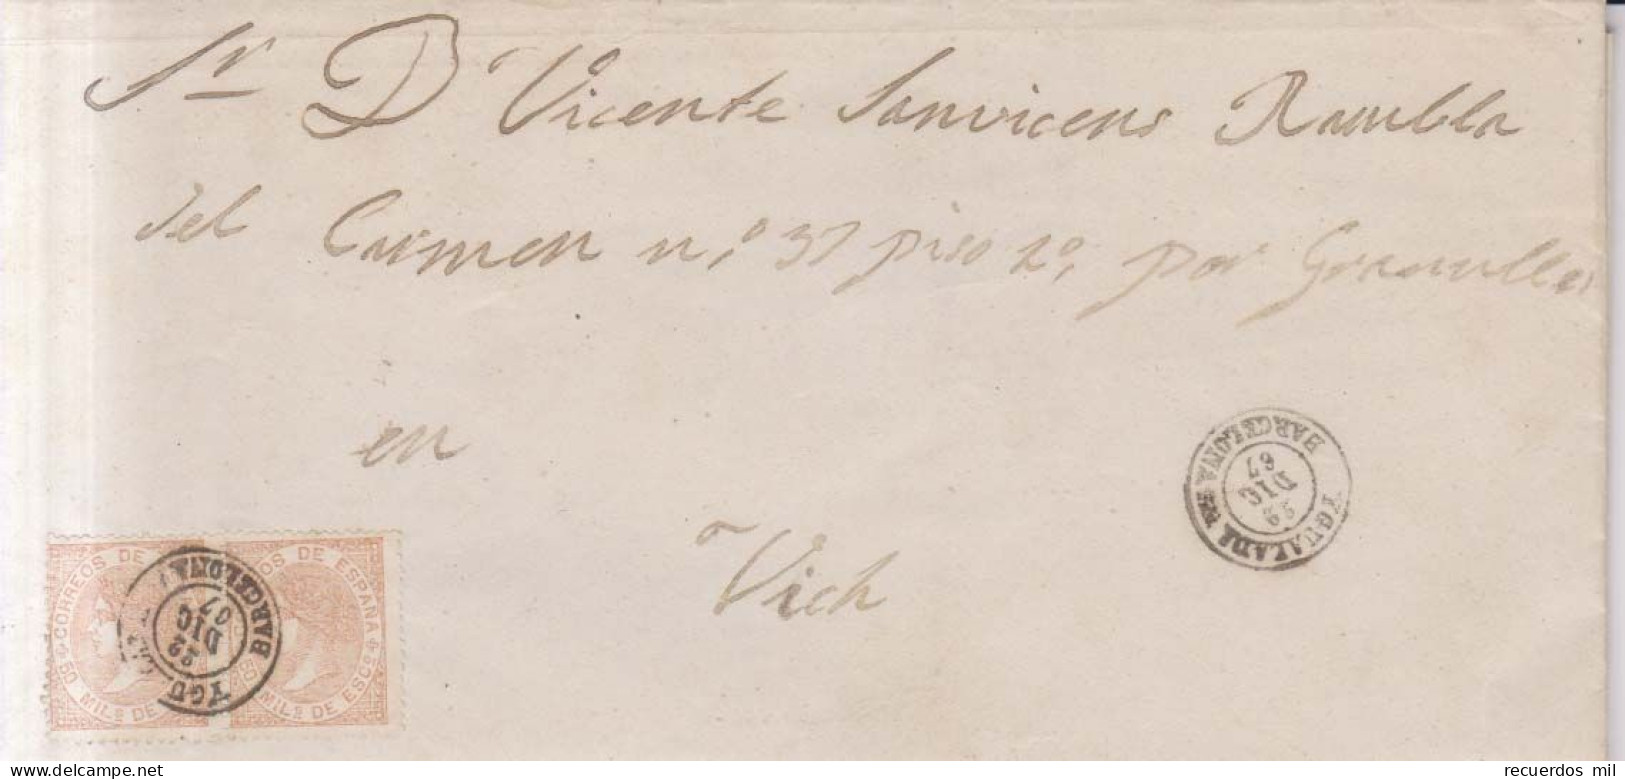 Sr D Vicente Sanvicens Rambla
del Carmen n.º 37 piso 2º, por Granollers
en
Vich
YGUALADA
BARCELONA
22
DIC
67
CORREOS DE
50 MILS DE
OS DE ESPAÑA
50 MILS DE ESCO
YGU
BARCELONA
22
DIC
67
www.delcampe.net
recuerdos mil